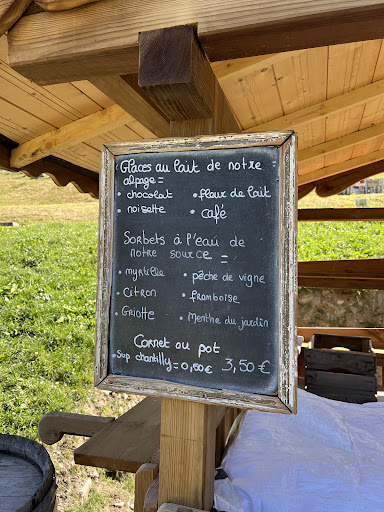 Glaces au lait de notre
alpage =
• chocolat • fleur de lait
• noisette • café
Sorbets à l'eau de
notre source =
• myrtille • pêche de vigne
• Citron • framboise
• Griotte • Menthe du jardin
Cornet ou pot
Sup chantilly = 0,50€ 3,50€